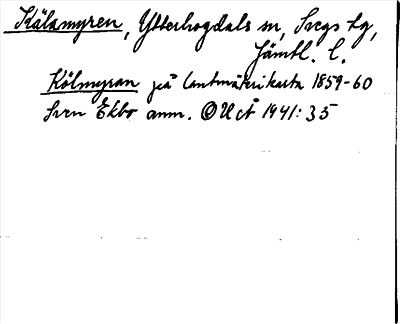 Kälamyren, Ytterhogdals sn, Svegs tg,
Jämtl. l.
Kölmyran på lantmäterikarta 1859-60
Sven Ekbo anm. OUÅ 1941:35